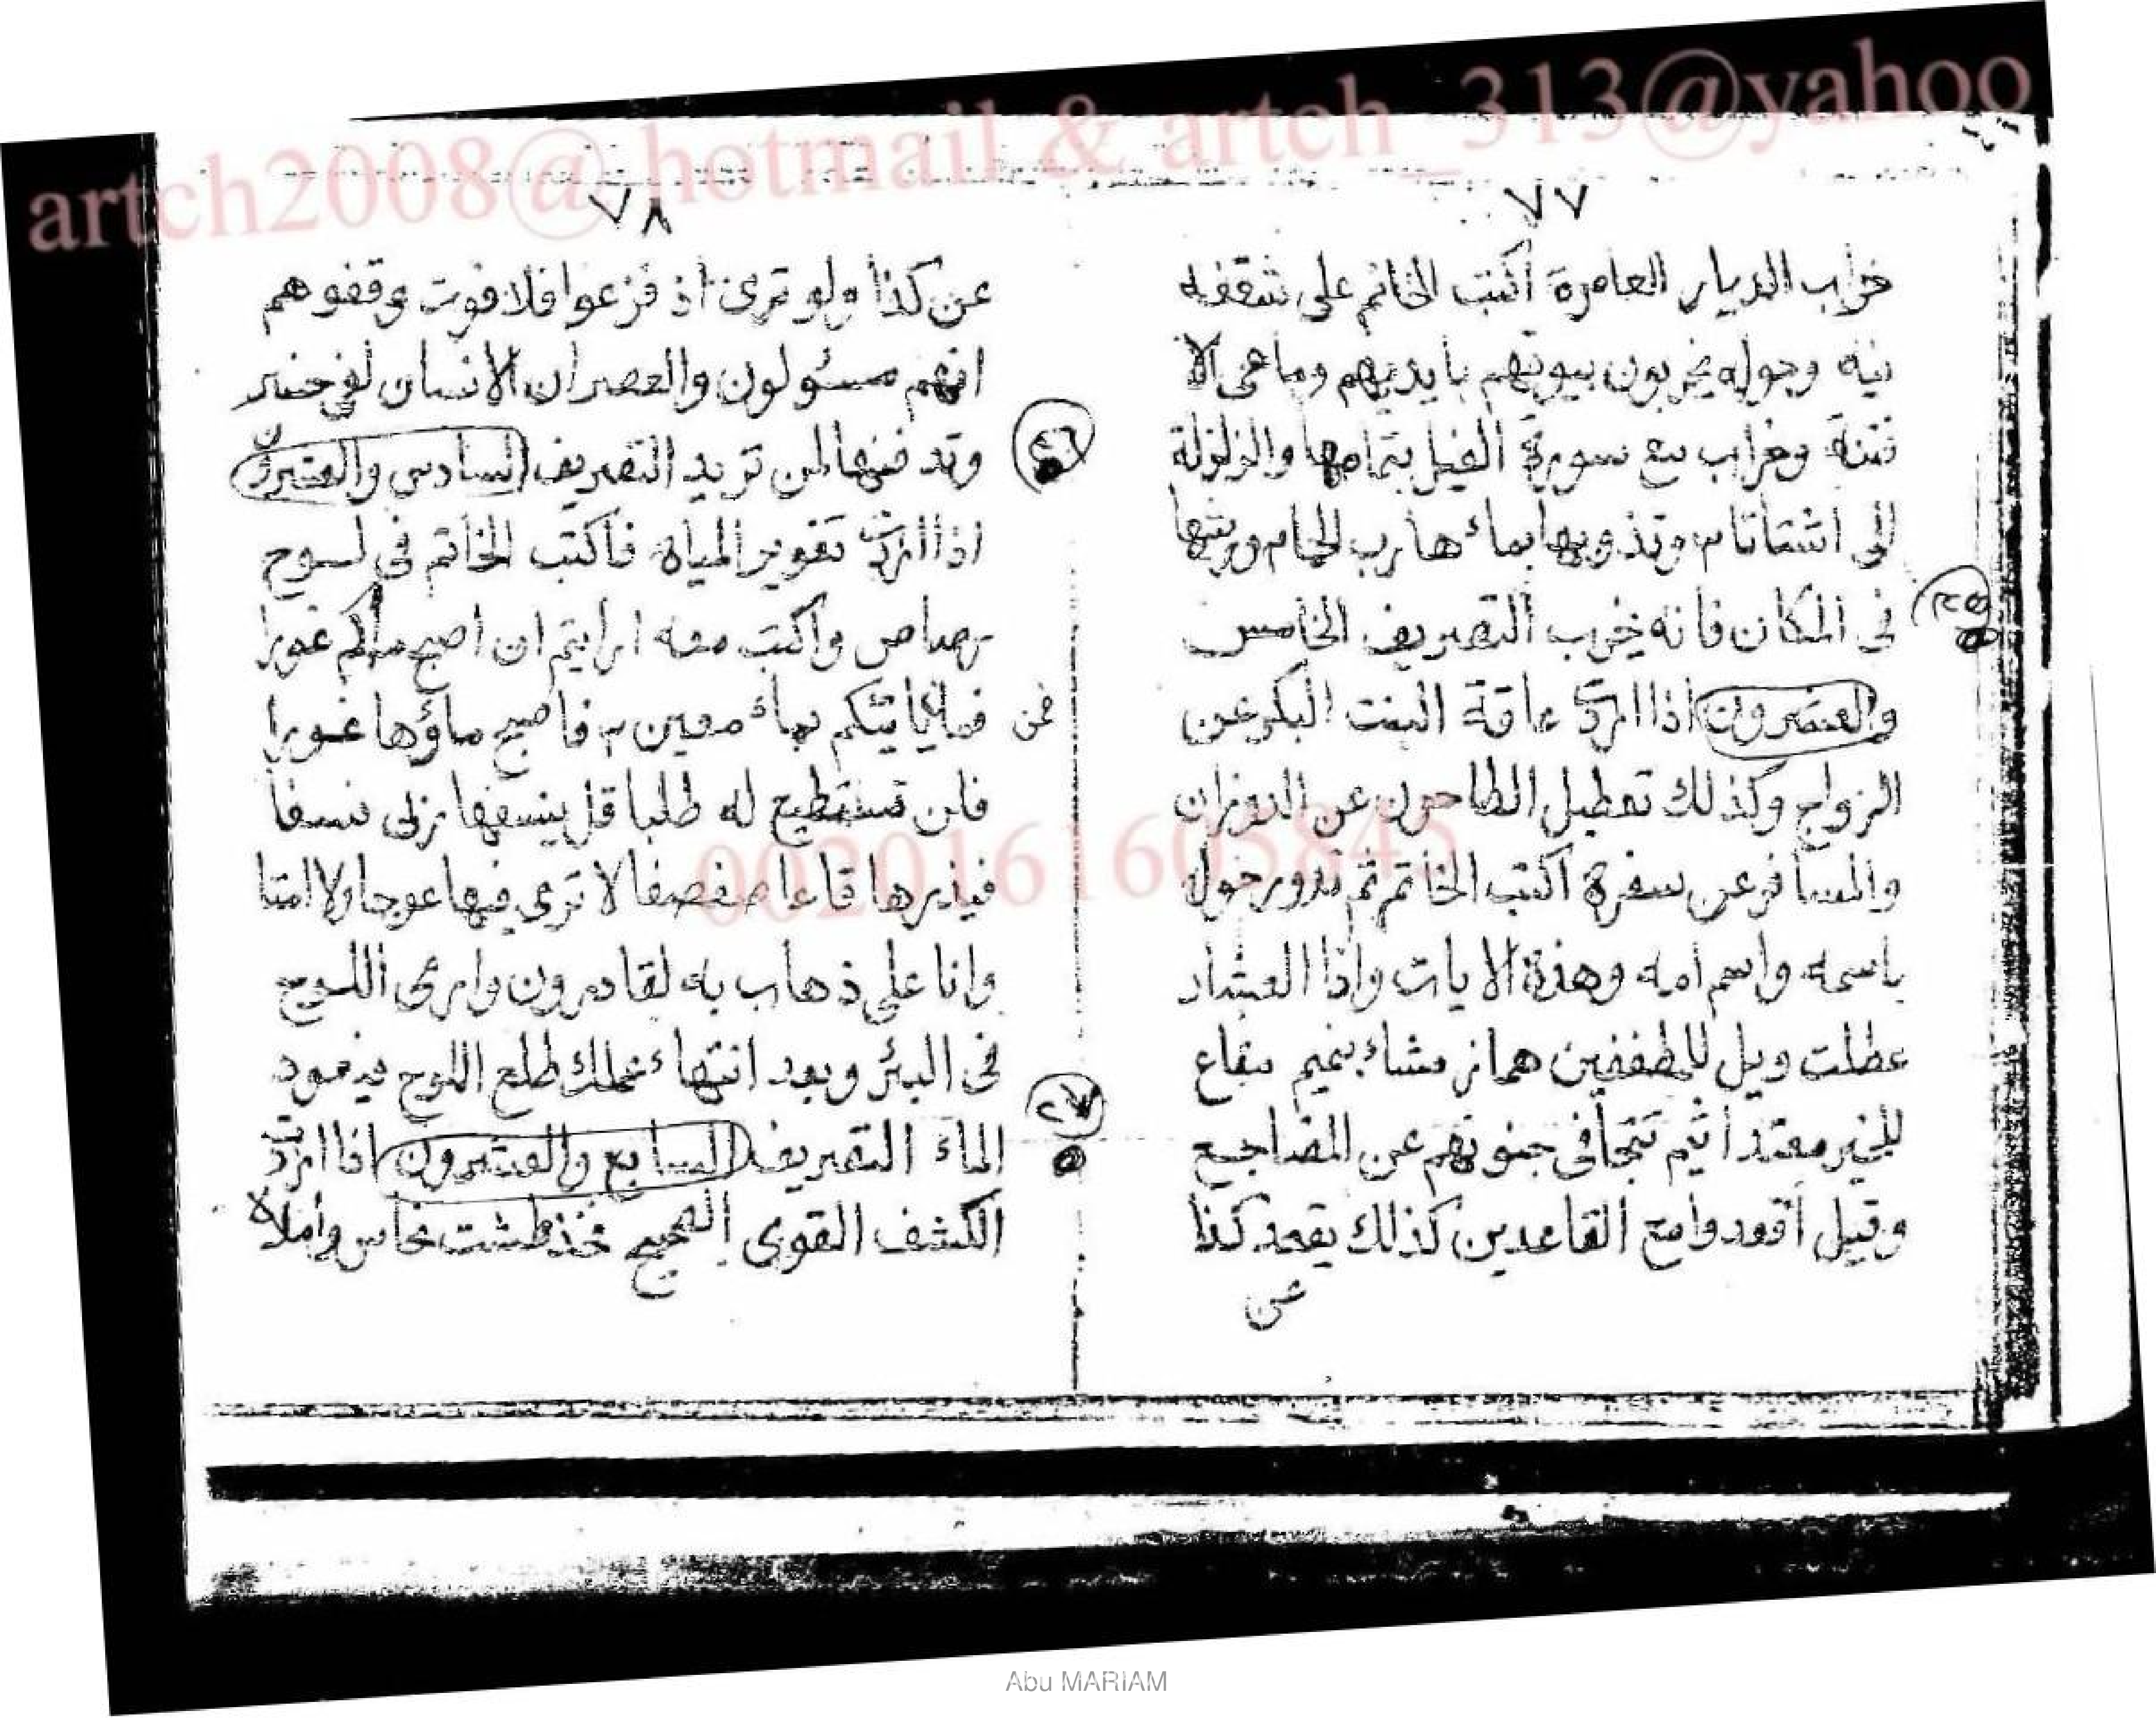 artch2008@ hotmail & artch_313@yahoo
٧٧
خراب الديار العامرة أكتب الخاتم على شقفه
نيه وحوله يخربون بيوتهم بايديهم وما هى الا
فتنة وخراب مع سورة الفيل بتمامها والزلزلة
الى اشتاتا م وتذوبها بماء هارب الحمام ورشها
فى المكان فانه يخرب التصريف الخامس
والعشرون اذا اردت عاقة البنت البكر عن
الزواج وكذلك تعطيل الطاحون عن الدوران
والمسافر عن سفرة اكتب الخاتم ثم تدور حوله
باسمه واسم امه وهذة الايات واذا العشار
عطلت ويل للمطففين هماز مشاء بنميم مناع
للخير معتد اثيم تتجافى جنوبهم عن المضاجع
وقيل أقعدوا مع القاعدين كذلك يقعد كذا
عن
٢٥
٧٨
عن كذا ولو ترى اذ فزعوا فلا فوت وقفوهم
انهم مسئولون والعصر ان الانسان لفى خسر
وتدفنها لمن تريد التصريف السادس والعشرون
٢٦
اذا اردت تغوير المياه فاكتب الخاتم فى لسوح
رصاص واكتب معه ارايتم ان اصبح ماؤكم غورا
فمن ياتيكم بماء معين م فاصبح ماؤها غورا
فمن
فلن تستطيع له طلبا قل ينسفها ربى نسفا
فيذرها قاعا صفصفا لا ترى فيها عوجا ولا امتا
وانا على ذهاب به لقادرون وارمى اللوح
فى البئر وبعد انتهاء عملك طلع اللوح يعود
الماء التصريف السابع والعشرون اذا اردت
٢٧
الكشف القوى الصحيح خذ طشت نحاس وأملاه
0020161605845
Abu MARIAM